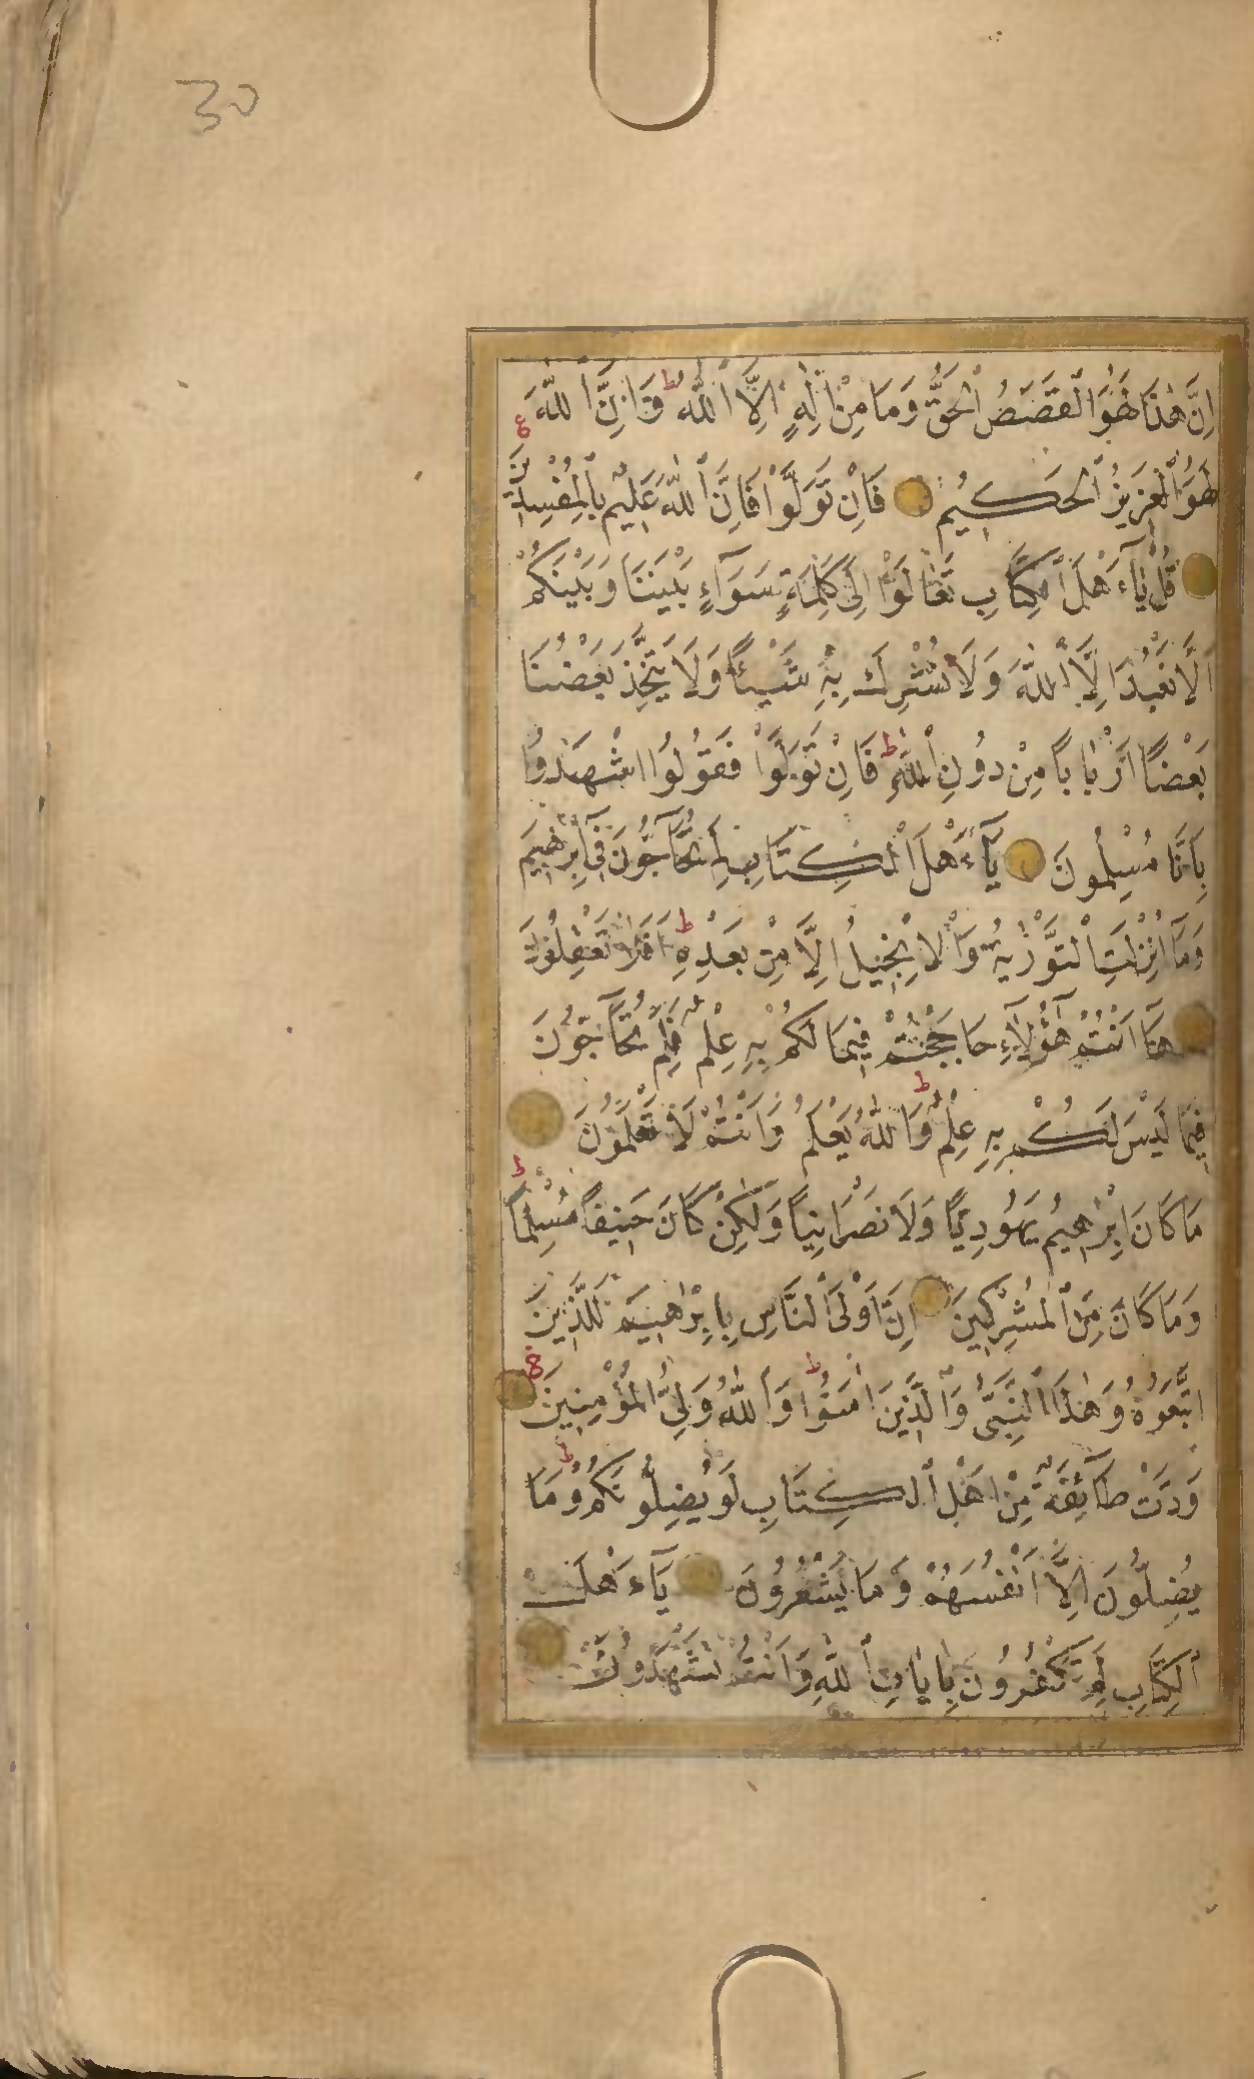 30
اِنَّ هٰذَا لَهُوَ الْقَصَصُ الْحَقُّ وَمَا مِنْ اِلٰهٍ اِلَّا اللّٰهُ ط وَاِنَّ اللّٰهَ ع
لَهُوَ الْعَزِيزُ الْحَكِيمُ فَاِنْ تَوَلَّوْا فَاِنَّ اللّٰهَ عَلِيمٌ بِالْمُفْسِدِينَ
قُلْ يَآءَهْلَ الْكِتَابِ تَعَالَوْا اِلٰى كَلِمَةٍ سَوَآءٍ بَيْنَنَا وَبَيْنَكُمْ
اَلَّا نَعْبُدَ اِلَّا اللّٰهَ وَلَا نُشْرِكَ بِهِ شَيْئًا وَلَا يَتَّخِذَ بَعْضُنَا
بَعْضًا اَرْبَابًا مِنْ دُونِ اللّٰهِ ط فَاِنْ تَوَلَّوْا فَقُولُوا اشْهَدُوا
بِاَنَّا مُسْلِمُونَ يَآءَهْلَ الْكِتَابِ لِمَ تُحَآجُّونَ فِٓي اِبْرٰهِيمَ
وَمَآ اُنْزِلَتِ التَّوْرٰيةُ وَالْاِنْجِيلُ اِلَّا مِنْ بَعْدِهِ ط اَفَلَا تَعْقِلُونَ
هَآ اَنْتُمْ هٰٓؤُلَآءِ حَاجَجْتُمْ فِيمَا لَكُمْ بِهِ عِلْمٌ فَلِمَ تُحَآجُّونَ
فِيمَا لَيْسَ لَكُمْ بِهِ عِلْمٌ ط وَاللّٰهُ يَعْلَمُ وَاَنْتُمْ لَا تَعْلَمُونَ
مَا كَانَ اِبْرٰهِيمُ يَهُودِيًّا وَلَا نَصْرَانِيًّا وَلٰكِنْ كَانَ حَنِيفًا مُسْلِمًا ط
وَمَا كَانَ مِنَ الْمُشْرِكِينَ اِنَّ اَوْلَى النَّاسِ بِاِبْرٰهِيمَ لَلَّذِينَ
اتَّبَعُوهُ وَهٰذَا النَّبِيُّ وَالَّذِينَ اٰمَنُوا ط وَاللّٰهُ وَلِيُّ الْمُؤْمِنِينَ
وَدَّتْ طَآئِفَةٌ مِنْ اَهْلِ الْكِتَابِ لَوْ يُضِلُّونَكُمْ ط وَمَا
يُضِلُّونَ اِلَّا اَنْفُسَهُمْ وَمَا يَشْعُرُونَ يَآءَهْلَ
الْكِتَابِ لِمَ تَكْفُرُونَ بِاٰيَاتِ اللّٰهِ وَاَنْتُمْ تَشْهَدُونَ